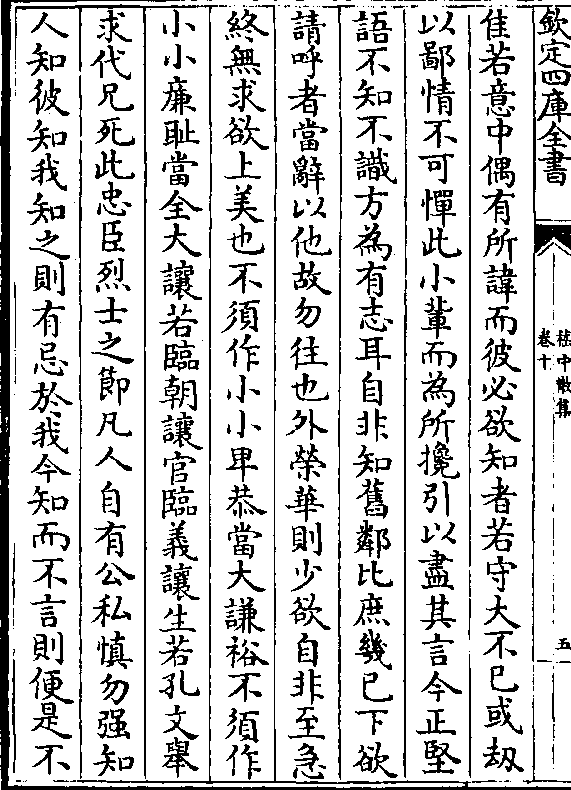 欽定四庫全書
嵇中散集
卷十
五
佳若意中偶有所諱而彼必欲知者若守大不已或刼
以鄙情不可憚此小輩而為所攙引以盡其言今正堅
語不知不識方為有志耳自非知舊鄰比庶幾已下欲
請呼者當辭以他故勿往也外榮華則少欲自非至急
終無求欲上美也不須作小小卑恭當大謙裕不須作
小小亷耻當全大讓若臨朝讓官臨義讓生若孔文舉
求代兄死此忠臣烈士之節凡人自有公私慎勿强知
人知彼知我知之則有忌於我今知而不言則便是不